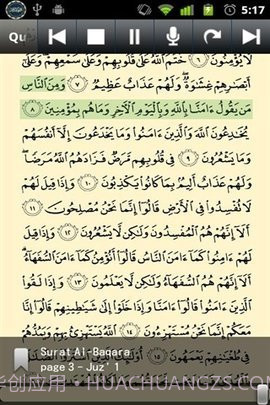 5:17
Qu
لَا يُؤْمِنُونَ ٦ خَتَمَ ٱللَّهُ عَلَىٰ قُلُوبِهِمْ وَعَلَىٰ سَمْعِهِمْ وَعَلَىٰٓ
أَبْصَٰرِهِمْ غِشَٰوَةٌ وَلَهُمْ عَذَابٌ عَظِيمٌ ٧ وَمِنَ ٱلنَّاسِ
مَن يَقُولُ ءَامَنَّا بِٱللَّهِ وَبِٱلْيَوْمِ ٱلْءَاخِرِ وَمَا هُم بِمُؤْمِنِينَ ٨
يُخَٰدِعُونَ ٱللَّهَ وَٱلَّذِينَ ءَامَنُوا۟ وَمَا يَخْدَعُونَ إِلَّآ أَنفُسَهُمْ
وَمَا يَشْعُرُونَ ٩ فِى قُلُوبِهِم مَّرَضٌ فَزَادَهُمُ ٱللَّهُ مَرَضًا
وَلَهُمْ عَذَابٌ أَلِيمٌۢ بِمَا كَانُوا۟ يَكْذِبُونَ ١٠ وَإِذَا قِيلَ لَهُمْ
لَا تُفْسِدُوا۟ فِى ٱلْأَرْضِ قَالُوٓا۟ إِنَّمَا نَحْنُ مُصْلِحُونَ ١١
أَلَآ إِنَّهُمْ هُمُ ٱلْمُفْسِدُونَ وَلَٰكِن لَّا يَشْعُرُونَ ١٢ وَإِذَا قِيلَ
لَهُمْ ءَامِنُوا۟ كَمَآ ءَامَنَ ٱلنَّاسُ قَالُوٓا۟ أَنُؤْمِنُ كَمَآ ءَامَنَ ٱلسُّفَهَآءُ
أَلَآ إِنَّهُمْ هُمُ ٱلسُّفَهَآءُ وَلَٰكِن لَّا يَعْلَمُونَ ١٣ وَإِذَا لَقُوا۟
ٱلَّذِينَ ءَامَنُوا۟ قَالُوٓا۟ ءَامَنَّا وَإِذَا خَلَوْا۟ إِلَىٰ شَيَٰطِينِهِمْ قَالُوٓا۟ إِنَّا
مَعَكُمْ إِنَّمَا نَحْنُ مُسْتَهْزِءُونَ ١٤ ٱللَّهُ يَسْتَهْزِئُ بِهِمْ وَيَمُدُّهُمْ
فِى طُغْيَٰنِهِمْ يَعْمَهُونَ ١٥
Surat Al-Baqara
page 3 - Juz' 1
华创应用 - HUACHUANGZS.COM